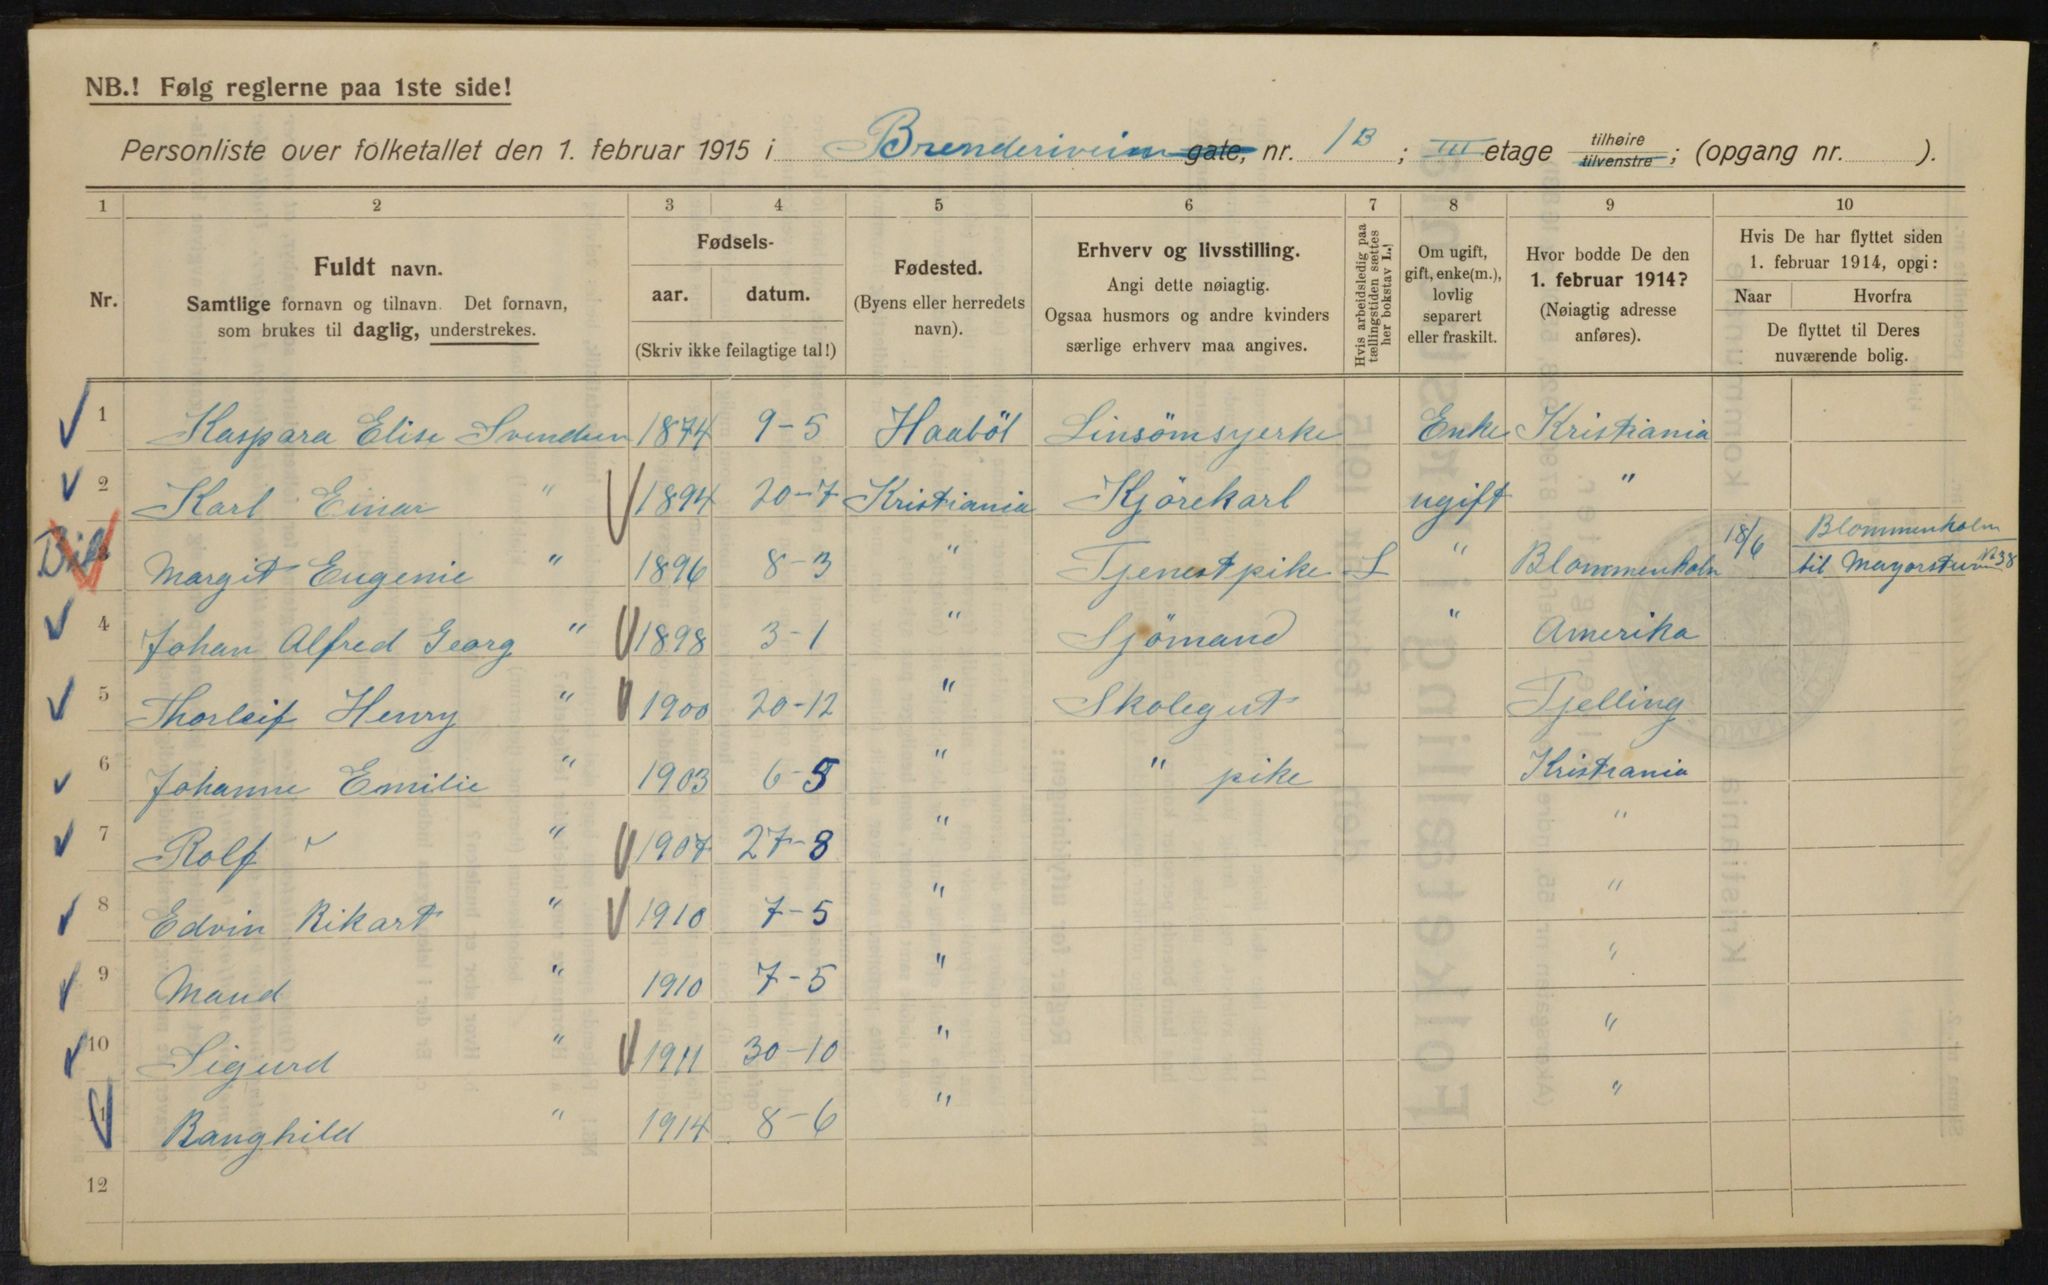 NB.! Følg reglerne paa 1ste side!
Personliste over folketallet den 1. februar 1915 i Brenderiveien gate, nr. 1B ; III etage tilhøire tilvenstre ; (opgang nr. ).
1 2 3 4 5 6 7 8 9 10
Nr.
Fuldt navn.
Samtlige fornavn og tilnavn. Det fornavn,
som brukes til daglig, understrekes.
Fødsels-
aar. datum.
(Skriv ikke feilagtige tal!)
Fødested.
(Byens eller herredets
navn).
Erhverv og livsstilling.
Angi dette nøiagtig.
Ogsaa husmors og andre kvinders
særlige erhverv maa angives.
Hvis arbeidsledig paa
tællingstiden sættes
her bokstav L.!
Om ugift,
gift, enke(m.),
lovlig
separert
eller fraskilt.
Hvor bodde De den
1. februar 1914?
(Nøiagtig adresse
anføres).
Hvis De har flyttet siden
1. februar 1914, opgi:
Naar Hvorfra
De flyttet til Deres
nuværende bolig.
1 Kaspara Elise Svendsen 1874 9-5 Haaböl Linsömsyerke Enke Kristiania
2 Karl Einar " 1894 20-7 Kristiania Kjörekarl ugift "
3 Margit Eugenie " 1896 8-3 " Tjenestpike L " Blommenholm 18/6 Blommenholm
til Mayorstuvn 38
4 Johan Alfred Georg " 1898 3-1 " Sjömand " Amerika
5 Thorleif Henry " 1900 20-12 " Skolegut Tjelling
6 Johanne Emilie " 1903 6-5 " " pike Kristiania
7 Rolf " 1907 27-8 " "
8 Edvin Rikart " 1910 7-5 " "
9 Maud " 1910 7-5 " "
10 Sigurd " 1911 30-10 " "
11 Ranghild " 1914 8-6 " "
12